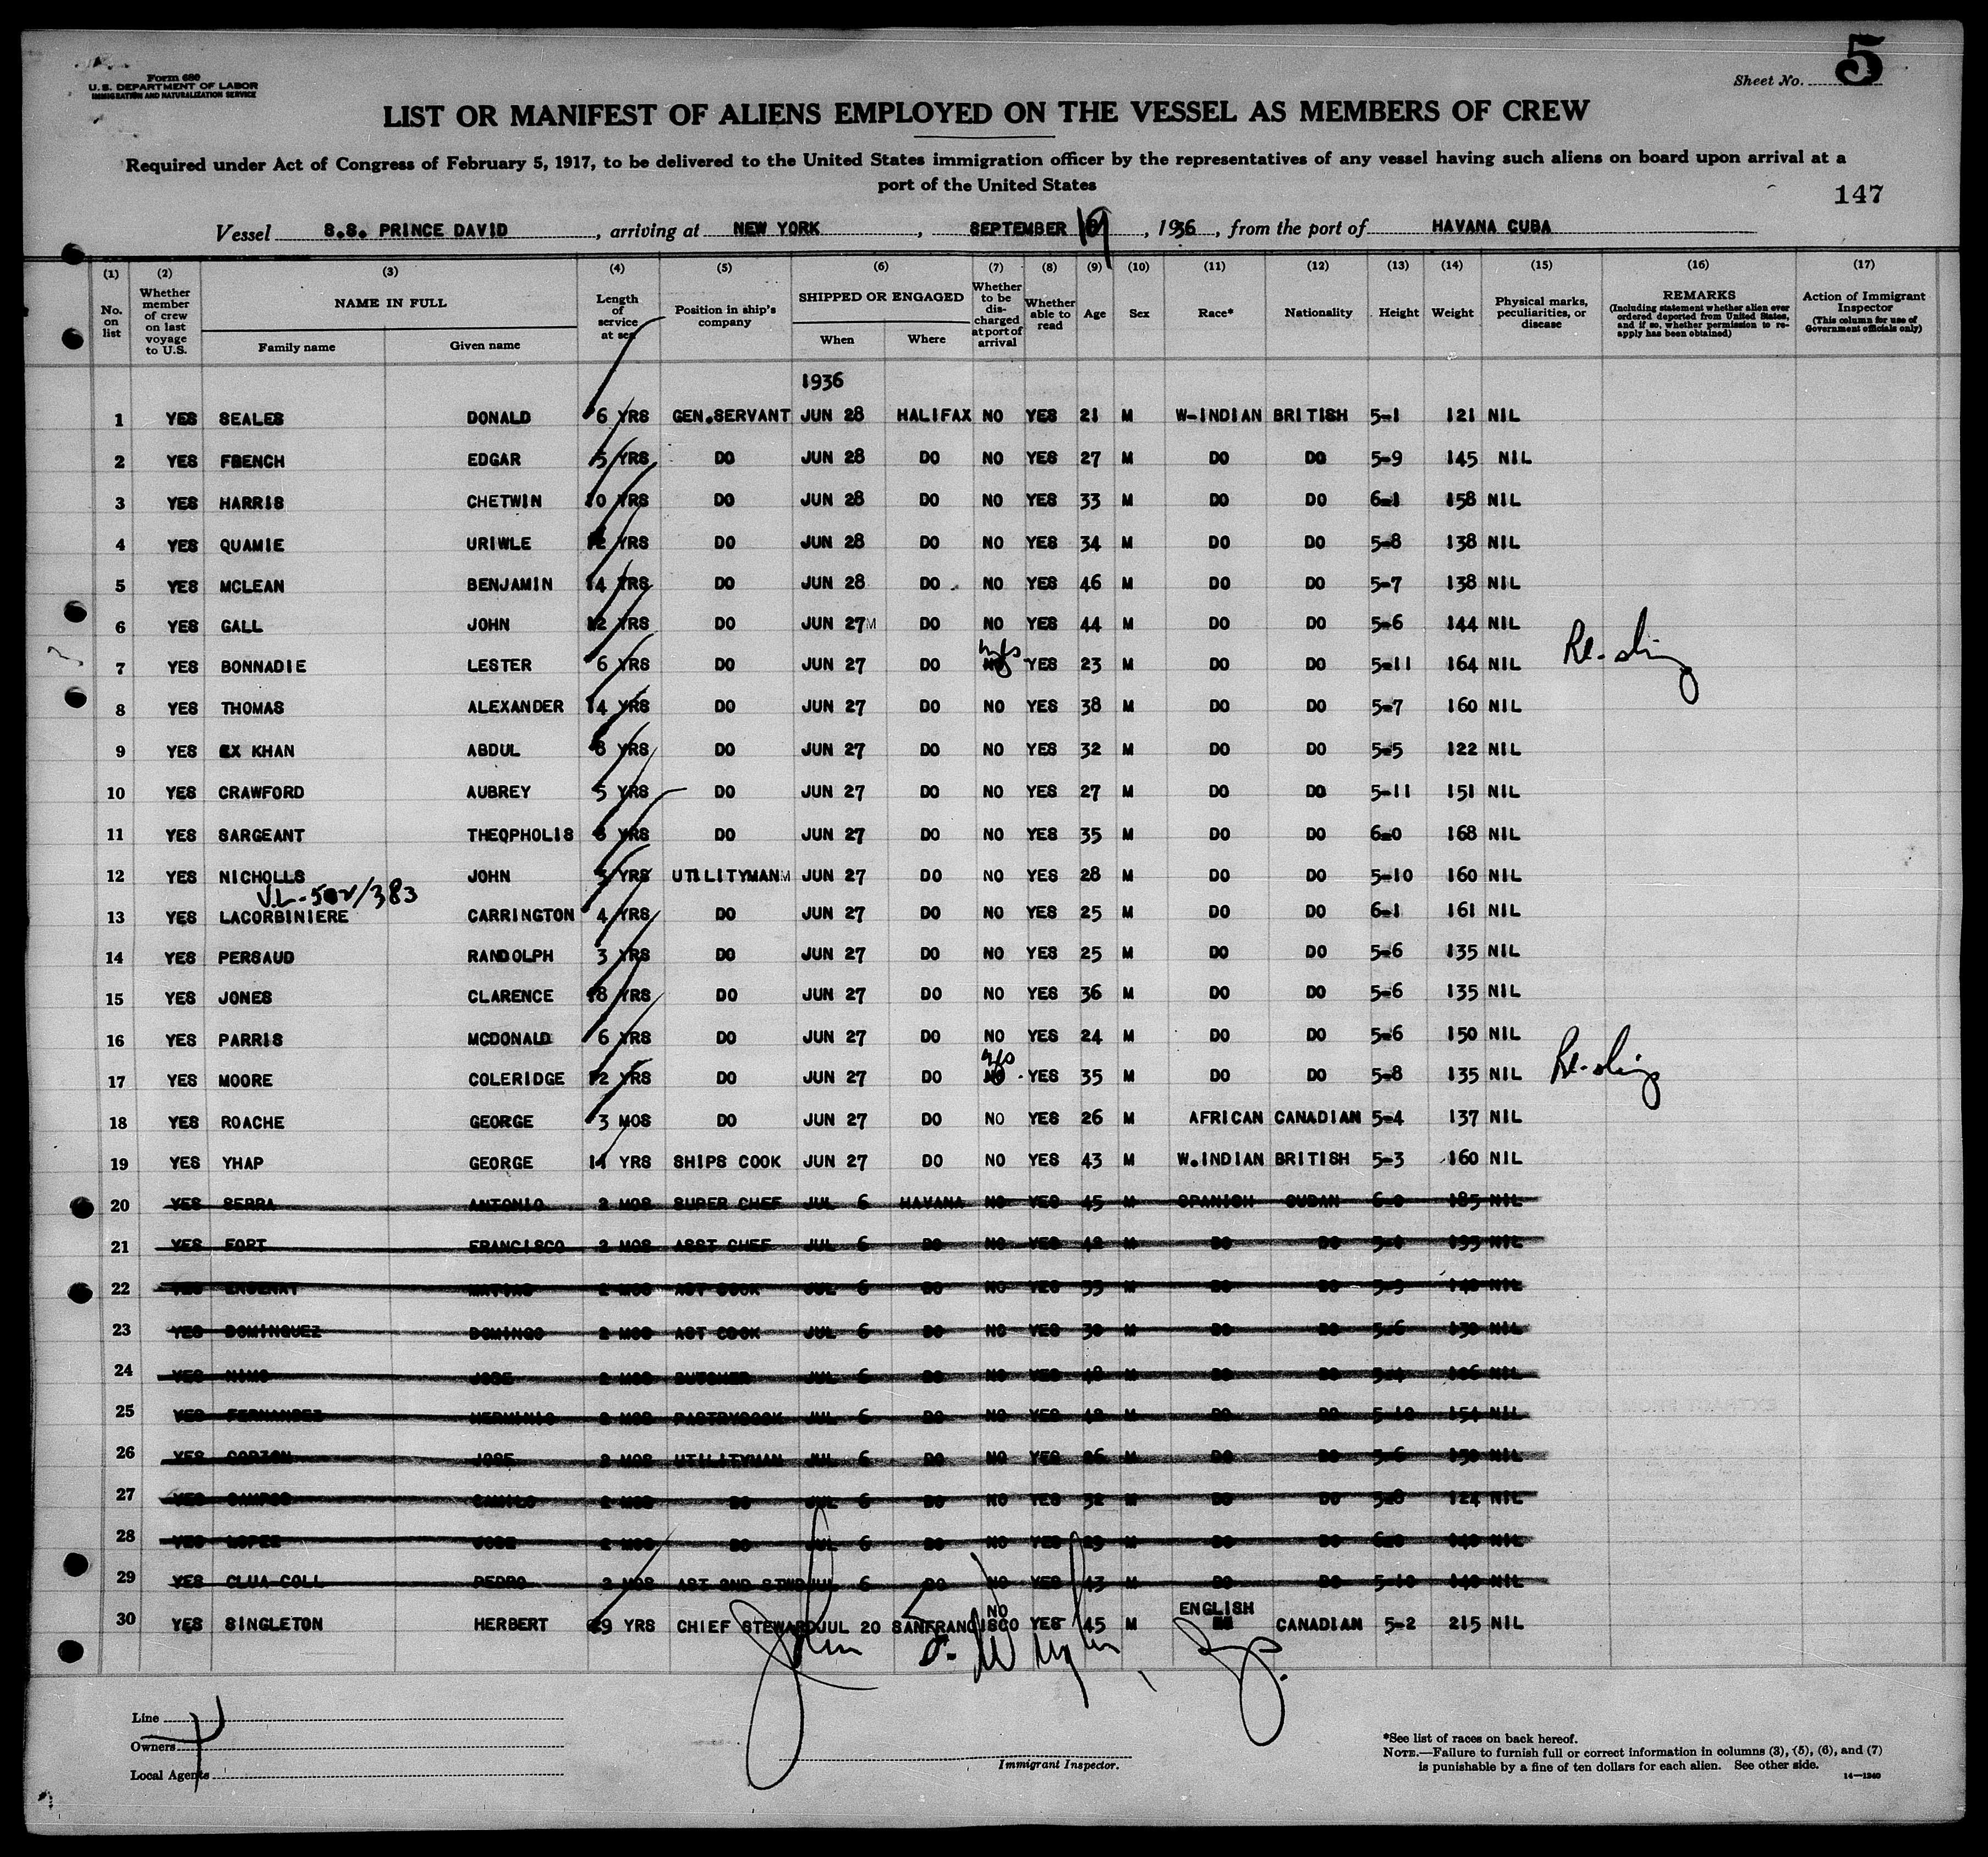 Form 680
U. S. DEPARTMENT OF LABOR
IMMIGRATION AND NATURALIZATION SERVICE
Sheet No. 5
LIST OR MANIFEST OF ALIENS EMPLOYED ON THE VESSEL AS MEMBERS OF CREW
Required under Act of Congress of February 5, 1917, to be delivered to the United States immigration officer by the representatives of any vessel having such aliens on board upon arrival at a
port of the United States
147
Vessel S.S. PRINCE DAVID, arriving at NEW YORK, SEPTEMBER 19, 1936, from the port of HAVANA CUBA
(1) (2) (3) (4) (5) (6) (7) (8) (9) (10) (11) (12) (13) (14) (15) (16) (17)
No. on list
Whether member of crew on last voyage to U.S.
NAME IN FULL
Family name
Given name
Length of service at sea
Position in ship's company
SHIPPED OR ENGAGED
When
Where
Whether to be discharged at port of arrival
Whether able to read
Age
Sex
Race*
Nationality
Height
Weight
Physical marks, peculiarities, or disease
REMARKS
(Including statement whether alien ever ordered deported from United States, and if so, whether permission to re-apply has been obtained)
Action of Immigrant Inspector
(This column for use of Government officials only)
1936
1 YES SEALES DONALD 6 YRS GEN.SERVANT JUN 28 HALIFAX NO YES 21 M W-INDIAN BRITISH 5-1 121 NIL
2 YES FRENCH EDGAR 5 YRS DO JUN 28 DO NO YES 27 M DO DO 5-9 145 NIL
3 YES HARRIS CHETWIN 10 YRS DO JUN 28 DO NO YES 33 M DO DO 6-1 158 NIL
4 YES QUAMIE URIWLE 12 YRS DO JUN 28 DO NO YES 34 M DO DO 5-8 138 NIL
5 YES MCLEAN BENJAMIN 14 YRS DO JUN 28 DO NO YES 46 M DO DO 5-7 138 NIL
6 YES GALL JOHN 12 YRS DO JUN 27 DO NO YES 44 M DO DO 5-6 144 NIL
7 YES BONNADIE LESTER 6 YRS DO JUN 27 DO NO yes YES 23 M DO DO 5-11 164 NIL
8 YES THOMAS ALEXANDER 14 YRS DO JUN 27 DO NO YES 38 M DO DO 5-7 160 NIL
9 YES EX KHAN ABDUL YRS DO JUN 27 DO NO YES 32 M DO DO 5-5 122 NIL
10 YES CRAWFORD AUBREY 5 YRS DO JUN 27 DO NO YES 27 M DO DO 5-11 151 NIL
11 YES SARGEANT THEOPHOLIS YRS DO JUN 27 DO NO YES 35 M DO DO 6-0 168 NIL
12 YES NICHOLLS JOHN YRS UTILITYMAN JUN 27 DO NO YES 28 M DO DO 5-10 160 NIL
13 YES LACORBINIERE CARRINGTON 4 YRS DO JUN 27 DO NO YES 25 M DO DO 6-1 161 NIL
14 YES PERSAUD RANDOLPH 3 YRS DO JUN 27 DO NO YES 25 M DO DO 5-6 135 NIL
15 YES JONES CLARENCE 18 YRS DO JUN 27 DO NO YES 36 M DO DO 5-6 135 NIL
16 YES PARRIS MCDONALD 6 YRS DO JUN 27 DO NO YES 24 M DO DO 5-6 150 NIL
17 YES MOORE COLERIDGE 12 YRS DO JUN 27 DO NO yes YES 35 M DO DO 5-8 135 NIL
18 YES ROACHE GEORGE 3 MOS DO JUN 27 DO NO YES 26 M AFRICAN CANADIAN 5-4 137 NIL
19 YES YHAP GEORGE 11 YRS SHIPS COOK JUN 27 DO NO YES 43 M W.INDIAN BRITISH 5-3 160 NIL
20 YES SERRA ANTONIO 2 MOS SUPER CHEF JUL 6 HAVANA NO YES 45 M SPANISH CUBAN 185 NIL
21 YES FORT FRANCISCO 2 MOS ASST CHEF JUL 6 DO NO YES 42 M DO DO NIL
22 YES 2 MOS AST COOK JUL 6 DO NO YES M DO DO NIL
23 YES DOMINGUEZ DOMINGO 2 MOS AST COOK JUL 6 DO NO YES M DO DO 5-6 NIL
24 YES JOSE 2 MOS BUTCHER JUL 6 DO NO YES M DO DO NIL
25 YES FERNANDEZ HERMINIO 2 MOS PASTRYCOOK JUL 6 DO NO YES M DO DO 5-10 154 NIL
26 YES JOSE 2 MOS UTILITYMAN JUL 6 DO NO YES M DO DO 5-6 NIL
27 YES CAMPOS CAMILO 2 MOS DO JUL 6 DO NO YES 32 M DO DO 5-8 124 NIL
28 YES LOPEZ JOSE 2 MOS DO JUL 6 DO NO YES M DO DO NIL
29 YES CLUA COLL PEDRO 2 MOS AST 2ND STWD JUL 6 DO NO YES 43 M DO DO 5-10 140 NIL
30 YES SINGLETON HERBERT 29 YRS CHIEF STEWARD JUL 20 SANFRANCISCO NO YES 45 M ENGLISH CANADIAN 5-2 215 NIL
Line
Owners
Local Agents
Immigrant Inspector.
*See list of races on back hereof.
NOTE.—Failure to furnish full or correct information in columns (3), (5), (6), and (7)
is punishable by a fine of ten dollars for each alien. See other side.
14—1240